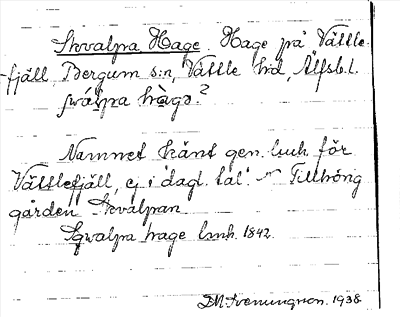 Skvalpa Hage. Hage på Vättle-
fjäll, Bergum s:n, Vättle hd, Älfsb.l.
skválpa hàgə?
Namnet känt gen. lmh. för
Vättlefjäll, ej i dagl. tal. Tillhöng
gården Skvalpan.
Sqwalpa hage lmh. 1842.
D.M. Svenungson. 1938